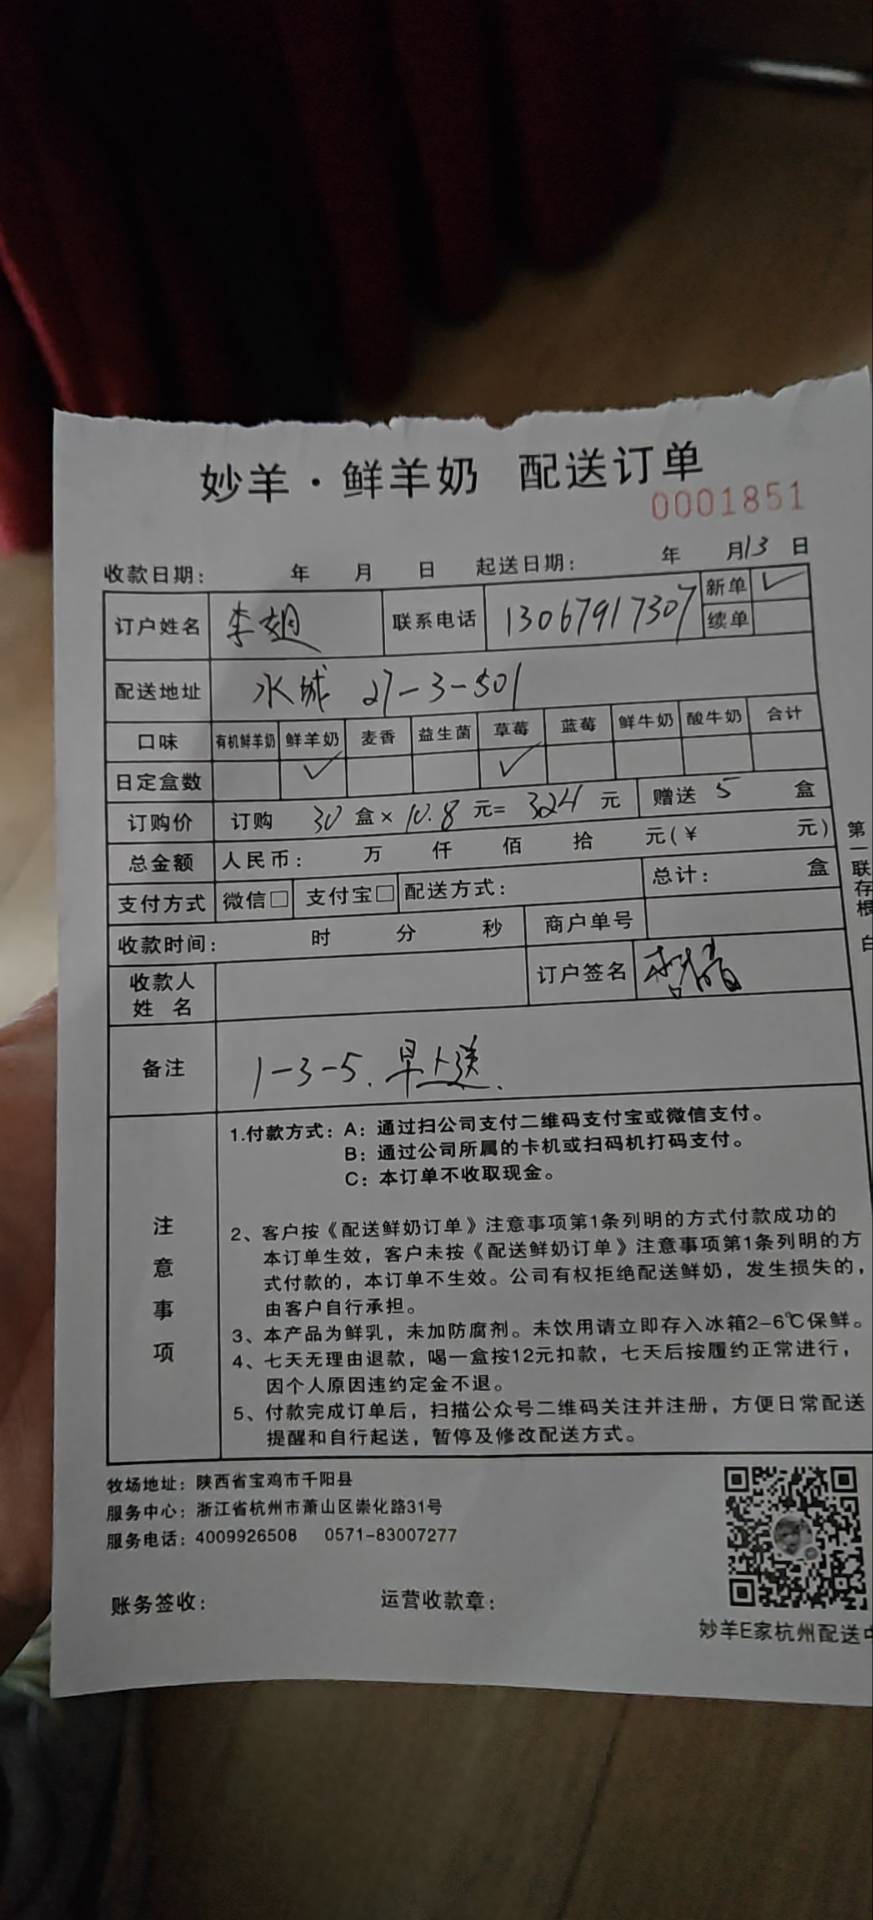 妙羊·鲜羊奶 配送订单
0001851
收款日期: 年 月 日 起送日期: 年 月13日
订户姓名 李姐 联系电话 13067917307 新单 ✓
续单
配送地址 水城 27-3-501
口味 有机鲜羊奶 鲜羊奶 麦香 益生菌 草莓 蓝莓 鲜牛奶 酸牛奶 合计
日定盒数 ✓ ✓
订购价 订购 30 盒× 10.8 元= 324 元 赠送 5 盒
总金额 人民币: 万 仟 佰 拾 元(¥ 元)
支付方式 微信□ 支付宝□ 配送方式: 总计: 盒
收款时间: 时 分 秒 商户单号
收款人姓名 订户签名
备注 1-3-5.早上送.
注意事项
1.付款方式: A: 通过扫公司支付二维码支付宝或微信支付。
B: 通过公司所属的卡机或扫码机打码支付。
C: 本订单不收取现金。
2、客户按《配送鲜奶订单》注意事项第1条列明的方式付款成功的
本订单生效，客户未按《配送鲜奶订单》注意事项第1条列明的方
式付款的，本订单不生效。公司有权拒绝配送鲜奶，发生损失的，
由客户自行承担。
3、本产品为鲜乳，未加防腐剂。未饮用请立即存入冰箱2-6℃保鲜。
4、七天无理由退款，喝一盒按12元扣款，七天后按履约正常进行，
因个人原因违约定金不退。
5、付款完成订单后，扫描公众号二维码关注并注册，方便日常配送
提醒和自行起送，暂停及修改配送方式。
第一联存根 白
牧场地址: 陕西省宝鸡市千阳县
服务中心: 浙江省杭州市萧山区崇化路31号
服务电话: 4009926508 0571-83007277
账务签收: 运营收款章:
妙羊E家杭州配送中